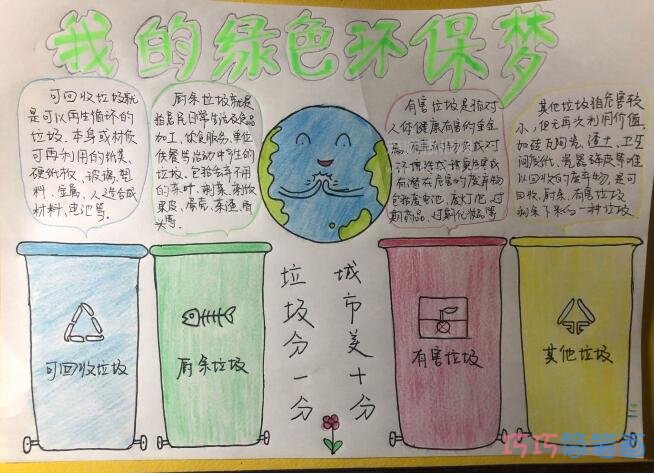 我的绿色环保梦
可回收垃圾就
是可以再生循环的
垃圾.本身或材质
可再利用的纸类、
硬纸板、玻璃、塑
料、金属、人造合成
材料、电池等.
厨余垃圾就是
指居民日常生活及食品
加工、饮食服务、单位
供餐等活动中产生的
垃圾.包括丢弃不用
的菜叶、剩菜、剩饭
果皮、蛋壳、茶渣、骨
头等.
有害垃圾是指对
人体健康有害的重金
有潜在危害的废弃物
包括废电池、废灯泡、过
期药品、过期化妆品等
其他垃圾指危害较
小,但无再次利用价值.
如砖瓦陶瓷、渣土、卫生
间废纸、瓷器碎片等难
以回收的废弃物,是可
回收、厨余、有害垃圾
剩余下来的一种垃圾
垃圾分一分
城市美十分
可回收垃圾
厨余垃圾
有害垃圾
其他垃圾
巧巧简笔画